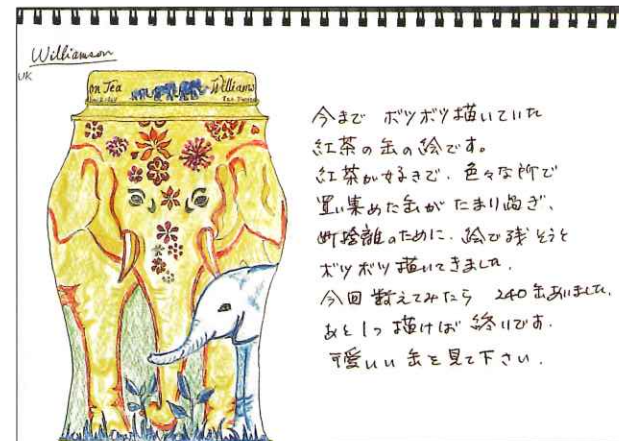 Williamson
UK
on Tea
Williams
今まで ボツボツ描いていた
紅茶の缶の絵です。
紅茶が好きで、色々な所で
買い集めた缶が たまり過ぎ、
断捨離のために、絵で残そうと
ボツボツ描いてきました。
今回 数えてみたら 240缶ありました。
あと1つ描けば 終りです。
可愛いい缶を見て下さい。